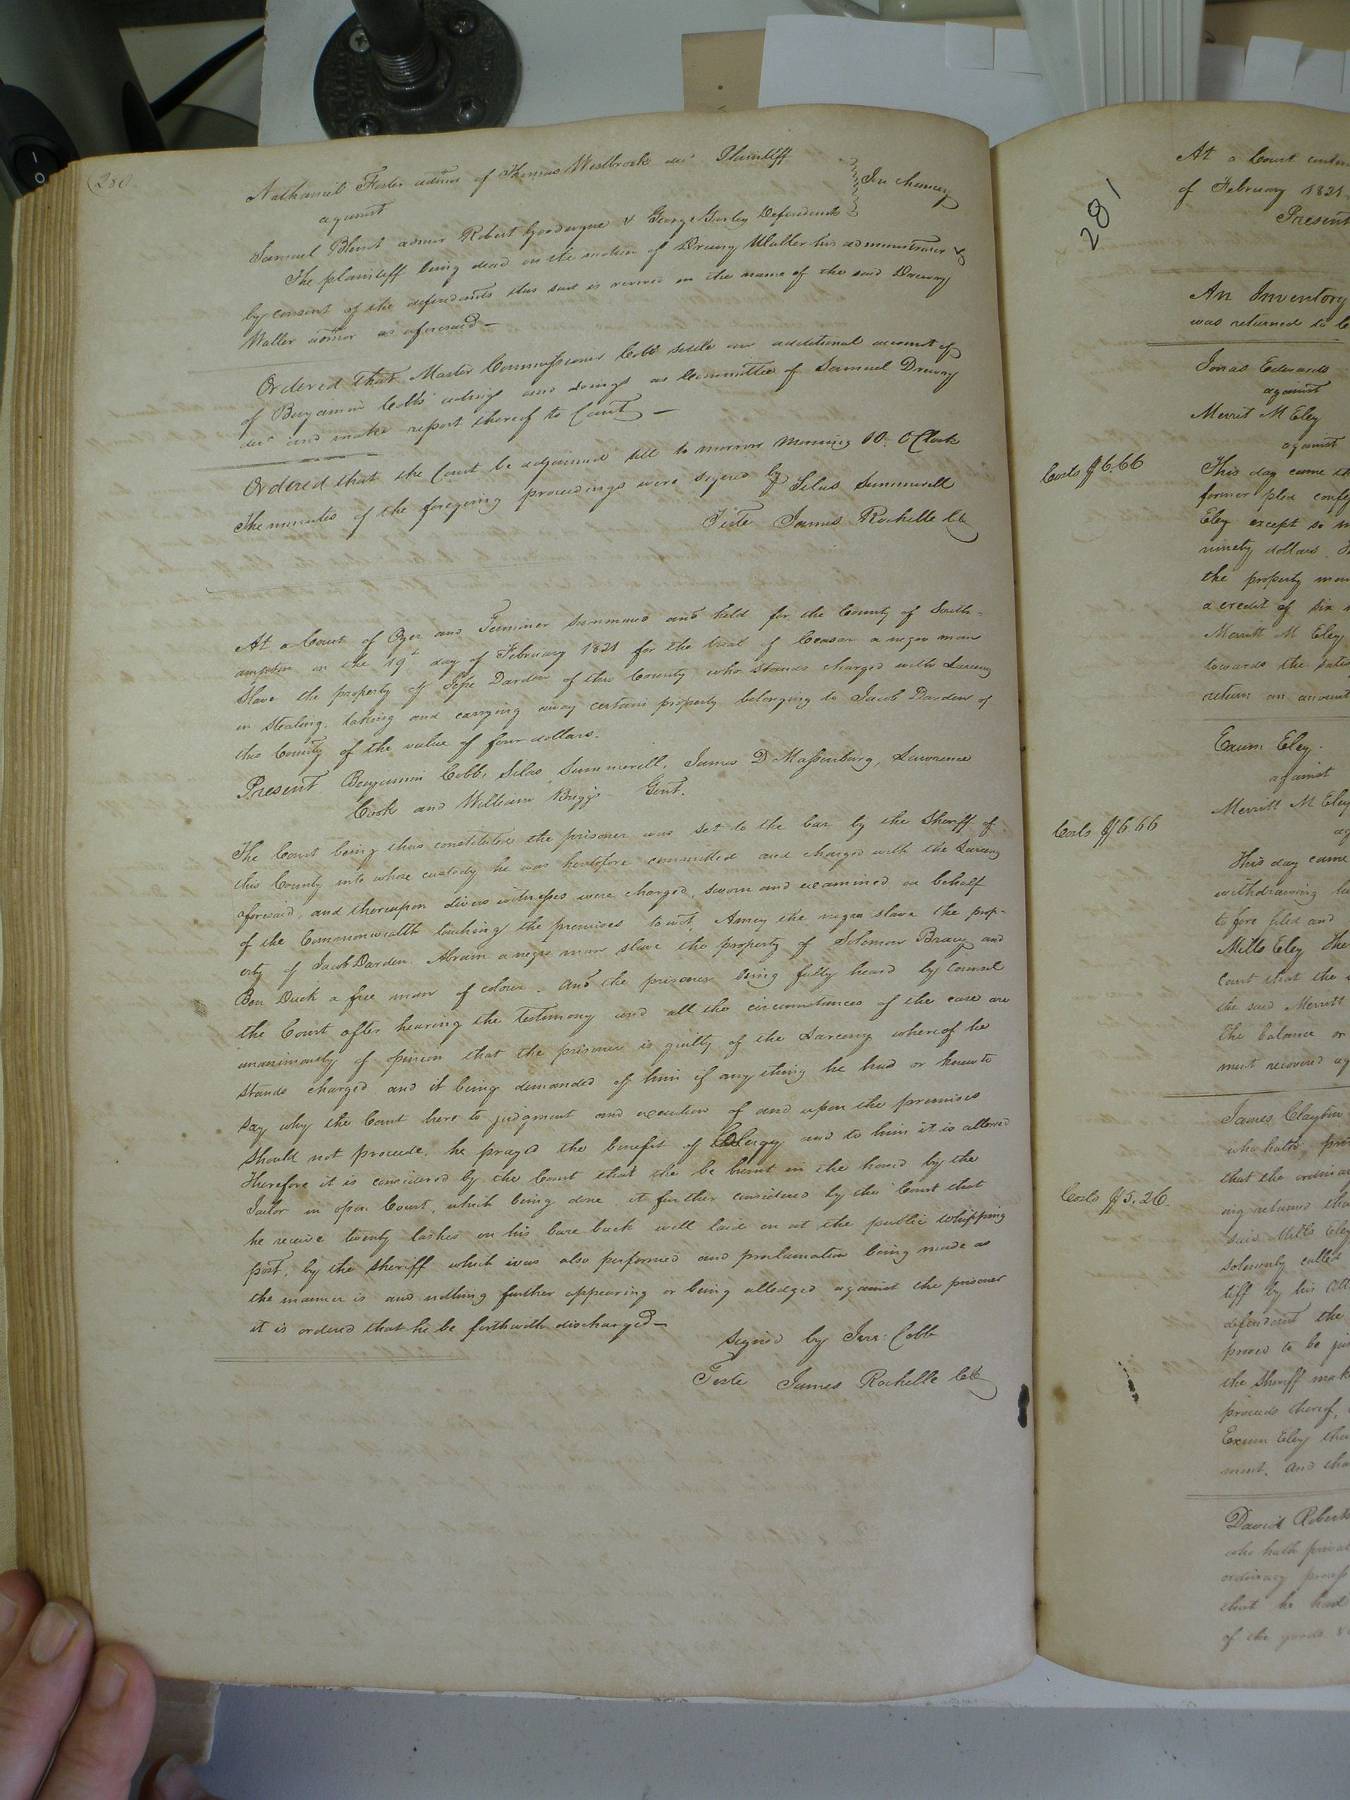 280
Nathaniel Foster admr of Thomas Westbrook decd Plaintiff
against
In chancery
Samuel Blunt admor Robert Goodwynne & George Gurley Defendants
The plaintiff being dead on the motion of Drewry Waller his administrator &
by consent of the defendants this suit is revived in the name of the said Drewry
Waller admor as aforesaid—
Ordered that Master Commissioner Cobb settle an additional account of
of Benjamin Cobbs' actings and doings as Committee of Samuel Drewry
decd and make report thereof to Court—
Ordered that the Court be adjourned till to morrow morning 10. O Clock
The minutes of the foregoing proceedings were signed by Silas Summerell
Teste James Rochelle Clk
At a Court of Oyer and Terminer summoned and held for the County of South-
ampton on the 19th day of February 1821 for the trial of Ceasar a negro man
Slave the property of Jesse Darden of this County who stands charged with Larceny
in stealing, taking and carrying away certain property belonging to Jacob Darden of
this County of the value of four dollars.
Present Benjamin Cobb, Silas Summerell, James D Massenburg, Lawrence
Cook and William Briggs Gent.
The Court being thus constituted the prisoner was set to the bar by the Sheriff of
this County into whose custody he was heretofore committed and charged with the Larceny
aforesaid, and thereupon divers witnesses were charged, sworn and examined on behalf
of the Commonwealth touching the premises towit, Amey the negro slave the prop-
erty of Jacob Darden Abram a negro man slave the property of Solomon Bracy and
Ben Duck a free man of colour. And the prisoner being fully heard by Counsel
the Court after hearing the testimony and all the circumstances of the case are
unanimously of opinion that the prisoner is guilty of the Larceny whereof he
stands charged and it being demanded of him if any thing he had or knew to
say why the Court here to judgment and execution of and upon the premises
should not proceede, he prayed the benefit of Clergy and to him it is allowed
Therefore it is considered by the Court that he be burnt in the hand by the
Jailor in open Court, which being done it further considered by the Court that
he receive twenty lashes on his bare back well laid on at the public whipping
post, by the Sheriff which was also performed and proclamation being made as
the manner is and nothing further appearing or being alledged against the prisoner
it is ordered that he be forthwith discharged—
Signed by Jerr: Cobb
Teste James Rochelle Clk
281
At a Court contin
of February 1821
Present
An Inventory
was returned to C
Jonas Edwards
against
Merrit M Eley
against
Costs $6.66
This day came th
former plea conf
Eley except so m
ninety dollars. H
the property men
a credit of six
Merritt M Eley
towards the satis
return an account
Exum Eley.
against
Merritt M Eley
ag
Costs $6.66
This day came
withdrawing hi
tofore filed and
Mills Eley. The
Court that the
the said Merritt
The balance or
ment recovered ag
James Clayton
who hath pri
that the ordinar
Costs $5.26.
ing returned tha
said Mills Eley
solemnly called
tiff by his att
defendant the
proved to be jus
the Sheriff mak
proceeds thereof,
Exum Eley the
ment. And tha
David Roberts
who hath prival
ordinary process
that he had
of the goods &